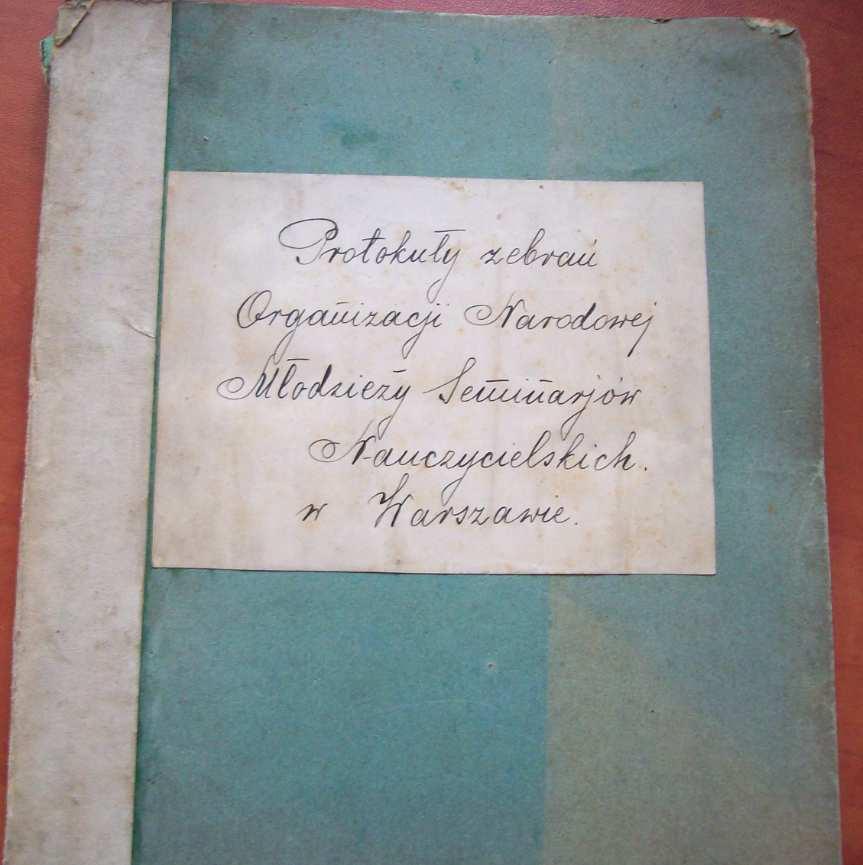 Protokuły zebrań
Organizacji Narodowej
Młodzieży Seminarjów
Nauczycielskich.
w Warszawie.